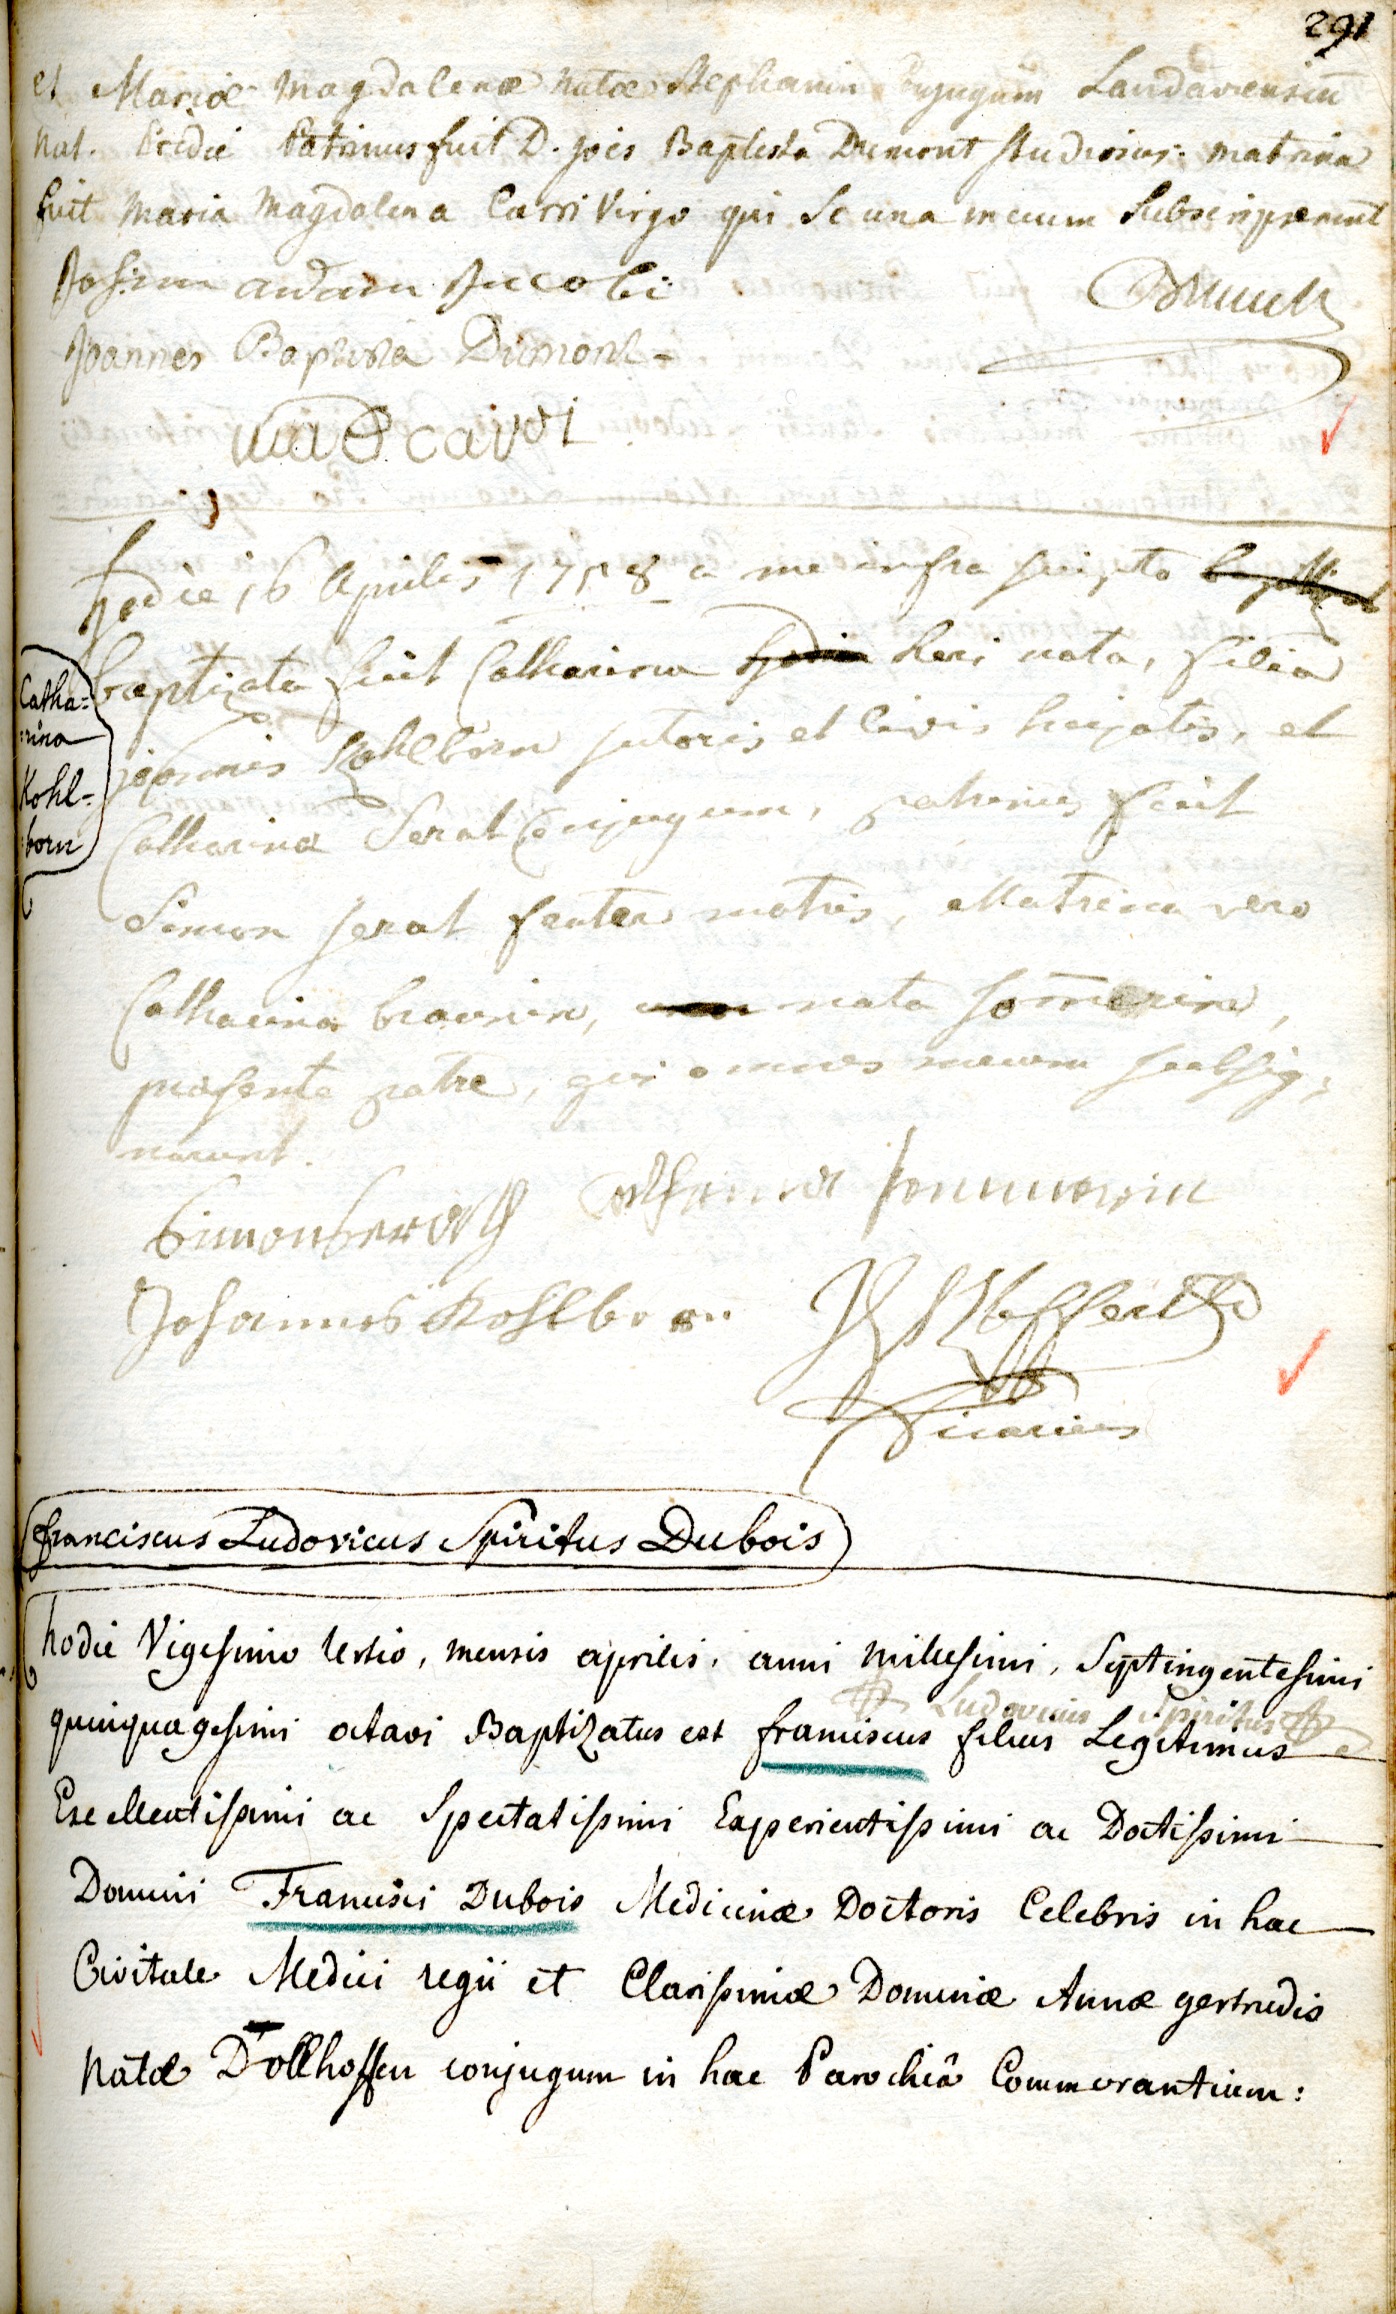 291
et Mariæ Magdalenæ natæ Stephanin Conjugum Landaviensiu
nat. Pridie Patrinus fuit D. Jois Baptista Dumont studiosus. matrina
fuit Maria Magdalena Carri Virgo qui se una mecum Subscripserunt
adam Jacobi
Joannes Baptista Dumont
hodie 16 Aprilis 1758 a me infra scripto
baptizata fuit Catharina heri nata, filia
joannis Kohlborn sutoris et Civis hujatis, et
Catharina Serat Conjugum, patrinus fuit
Simon serat frater matris, Matrina vero
Catharina braunin, nata sommerin,
præsente patre, qui omnes mecum subsig-
narunt.
Catha=
rina
Kohl=
born
Simon Serath
Johannes Kohlborn
Vicarius
franciscus Ludovicus Spiritus Dubois
hodie Vigesimo tertio, mensis aprilis, anni millesimi, Septingentesimi
Ludovicus Spiritus
quinquagesimi octavi Baptizatus est franciscus filius Legitimus
Excellentissimi ac Spectatissimi Experientissimi ac Doctissimi
Domini Francisci Dubois Medicinæ Doctoris Celebris in hac
Civitate Medici regii et Clarissimæ Dominæ Annæ gertrudis
Natæ Dollhoffen conjugum in hac Parochiâ Commorantium: